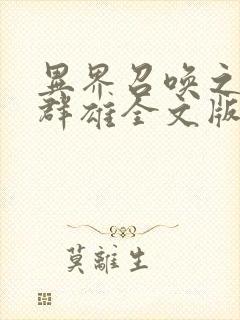 異界召喚之
群雄全文版
莫離生